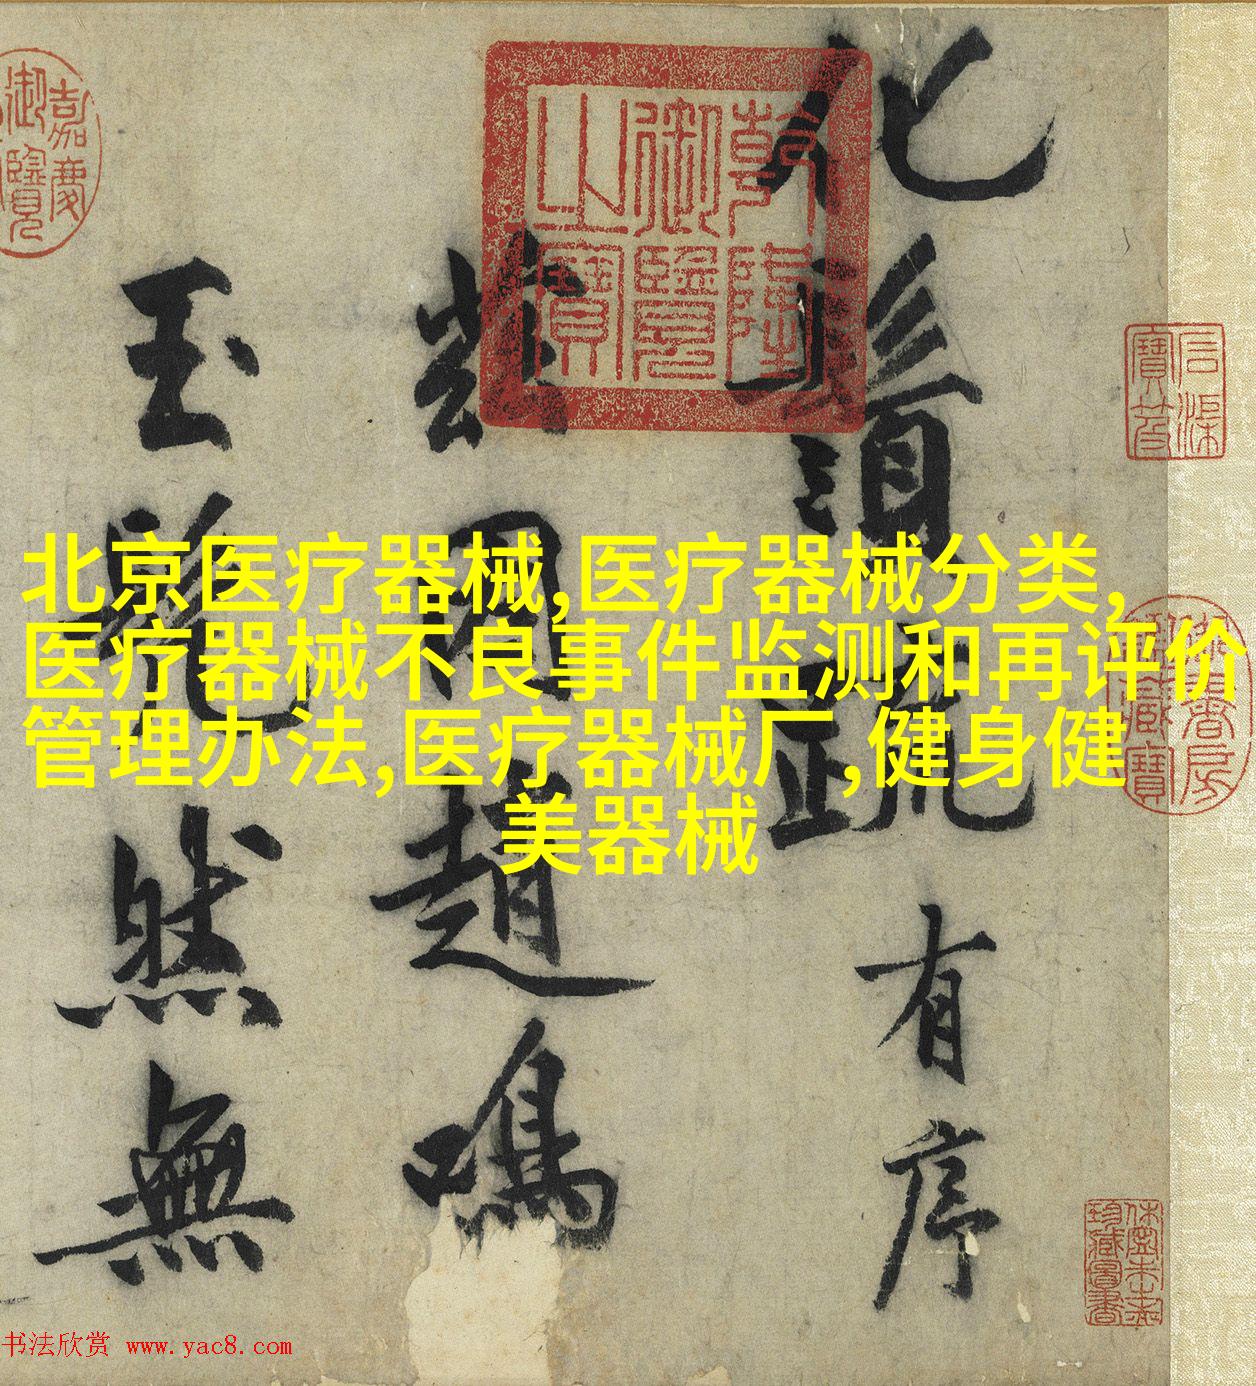 化鬚疎有序
周趙鳴
玉鬯然無
乾隆御覽之寶
嘉慶御覽
石渠寶笈
北京医疗器械,医疗器械分类,
医疗器械不良事件监测和再评价
管理办法,医疗器械厂,健身健
美器械
书法欣赏 www.yac8.com